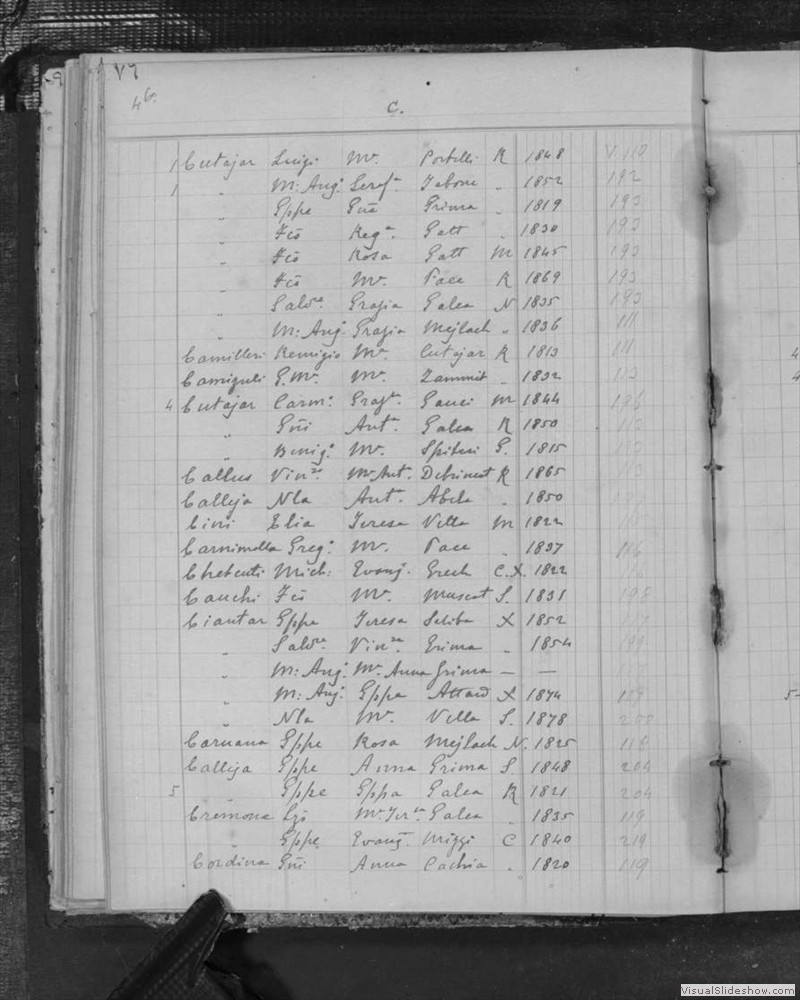 V7
46.
C.
1 Cutajar Luigi Mª. Portelli R 1848 V. 110
1 " M: Ang: Seraf.ª Tabone " 1852 192
" Gppe Gnã Grima " 1819 193
" Fcõ Reg.ª Gatt " 1830 193
" Fcõ Rosa Gatt M 1845 193
" Fcõ Mª. Pace R 1869 193
" Salv.re Grazia Galea N 1835 193
" M: Ang: Grazia Mejlach " 1836 111
Camilleri Remigio Mª. Cutajar R 1813 111
Camiguli G. Mª. Mª. Zammit " 1832 113
4 Cutajar Carm: Graz.ª Gauci M 1844 196
" Gñi Ant.ª Galea R 1850 113
" Benig: Mª. Spiteri G. 1815
Callus Vin.zo Mª Ant. Debrincat R 1865
Calleja Nla Ant.ª Abela " 1850
Cini Elia Teresa Vella M 1822
Carnimolla Greg: Mª. Pace " 1837 116
Chetcuti Mich: Evang: Grech C.X. 1822
Cauchi Fcõ Mª. Muscat S. 1831
Ciantar Gppe Teresa Saliba X 1852
" Salv.re Vin.za Grima " 1854
" M: Ang: Mª. Anna Grima — —
" M: Ang: Gppa Attard X 1874
" Nla Mª. Vella S. 1878 200
Caruana Gppe Rosa Mejlach N. 1825 118
Calleja Gppe Anna Grima S. 1848 204
5 " Gppe Gppa Galea R 1821 204
Cremona Lgi Mª. Ter.sa Galea " 1835 119
" Gppe Evang: Mizzi C 1840 219
Cordina Gñi Anna Cachia " 1820 119
4
4
5-
VisualSlideshow.com